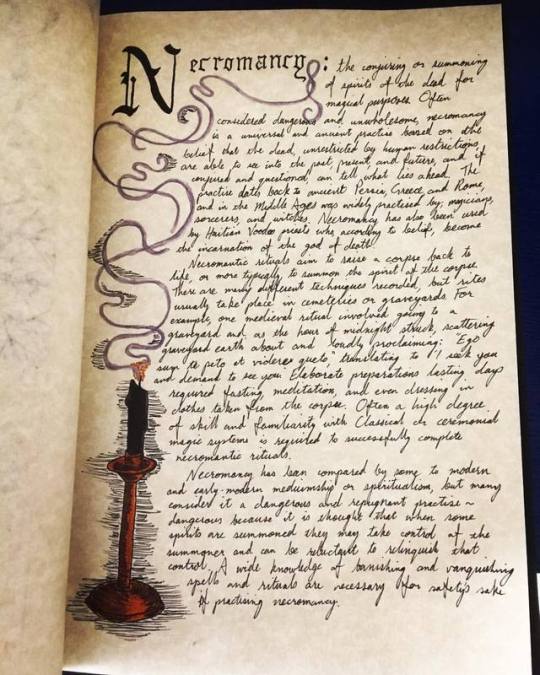 Necromancy: the conjuring or summoning
of spirits of the dead for
magical purposes. Often
considered dangerous and unwholesome, necromancy
is a universal and ancient practice based on the
belief that the dead, unrestricted by human restrictions,
are able to see into the past, present and future, and if
conjured and questioned, can tell what lies ahead. The
practise dates back to ancient Persia, Greece and Rome,
and in the Middle Ages was widely practised by, magicians,
sorcerers, and witches. Necromancy has also been used
by Haitian Voodoo priests who, according to belief, become
the incarnation of the god of death.
Necromantic rituals aim to raise a corpse back to
life, or more typically to summon the spirit of the corpse.
There are many different techniques recorded, but rites
usually take place in cemeteries or graveyards. For
example, one medieval ritual involved going to a
graveyard and, as the hour of midnight struck, scattering
graveyard earth about and loudly proclaiming: "Ego
sum te peto et videre queto" translating to "I seek you
and demand to see you". Elaborate preparations lasting days
required fasting, meditation, and even dressing in
clothes taken from the corpse. Often a high degree
of skill and familiarity with Classical or ceremonial
magic systems is required to successfully complete
necromantic rituals.
Necromancy has been compared by some to modern
and early-modern mediumship or spiritualism, but many
consider it a dangerous and repugnant practise ~
dangerous because it is thought that when some
spirits are summoned they may take control of the
summoner and can be reluctant to relinquish that
control. A wide knowledge of banishing and vanquishing
spells and rituals are necessary for safety's sake
if practising necromancy.